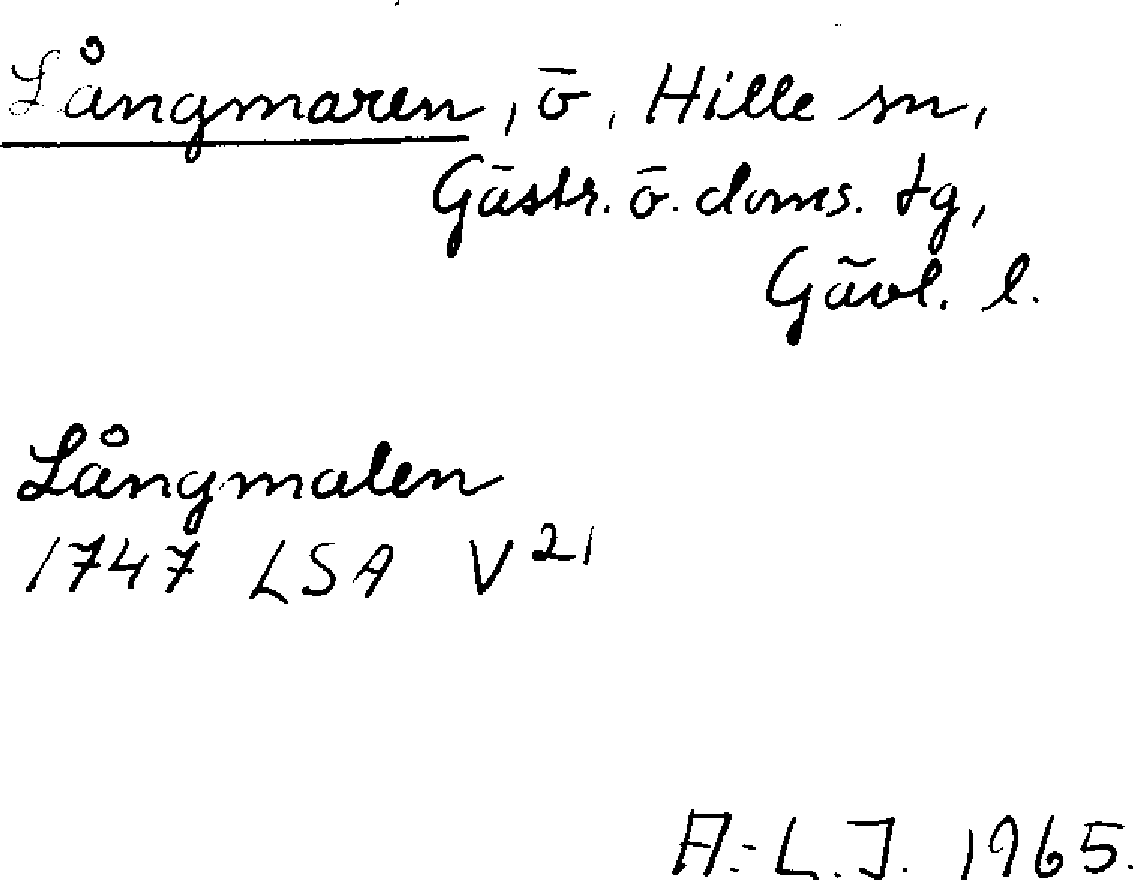 Långmaren, ö, Hille sn,
Gästr. ö. doms. tg,
Gävl. l.
Långmalen
1747 LSA V 21
A.-L.J. 1965.